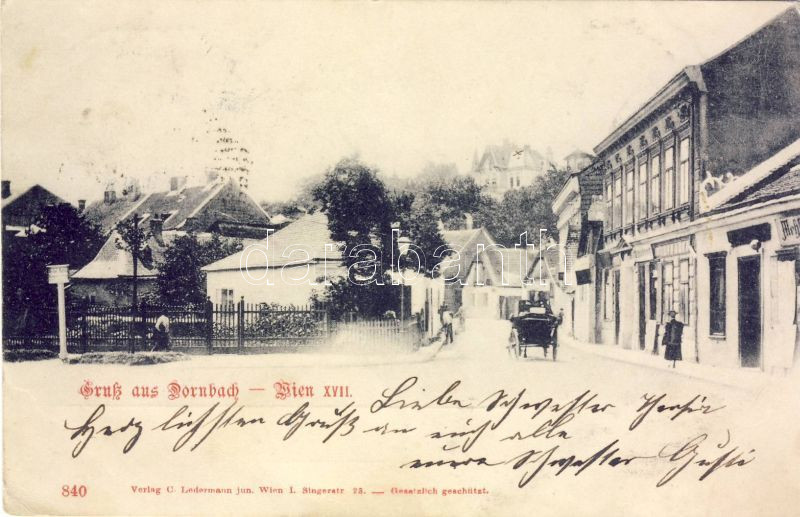 darabanth
Gruß aus Dornbach — Wien XVII.
Liebe Schwester
Herzlichsten Gruß an euch alle
eure Schwester Gusti
840
Verlag C. Ledermann jun. Wien I. Singerstr. 23. — Gesetzlich geschützt.